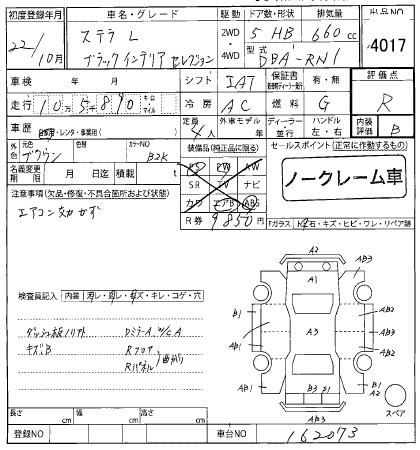 初度登録年月 車名・グレード 駆動 ドア数・形状 排気量 出品NO
22/10月 ステラ L 2WD 5 HB 660cc 4017
ブラックインテリアセレクション 4WD 型式 DBA-RN1
車検 年 月 シフト IAT 保証書 有・無 評価点
走行 10万5千890 キロ マイル 冷房 AC 燃料 G R
車歴 自家用・レンタ・事業用( ) 定員 4人 外車モデル 年 ディーラー 並行 ハンドル 左・右 内装評価 B
外色 元色 ブラウン 色替 カラーNO B2K 装備品(純正品に限る) セールスポイント(正常に作動するもの)
名義変更期限 月 日迄 積載 t PS PW AW ノークレーム車
注意事項(欠品・修復・不具合箇所および状態) SR TV ナビ
エアコン効かず カワ エアB ABS
R券 9850円 Fガラス トビ石・キズ・ヒビ・ワレ・リペア跡
検査員記入 内装 スレ・キズ・キレ・コゲ・穴
ダッシュ板ノリアト DミラーA W/C A
キズB Rフロア
Rパネル 曲がり
A2
A1
AB3
B1
AB2
A3
AB1
AB2
B3 B1
B1
A2
AB3
スペア
長さ cm 幅 cm 高さ cm
登録NO 車台NO 162073